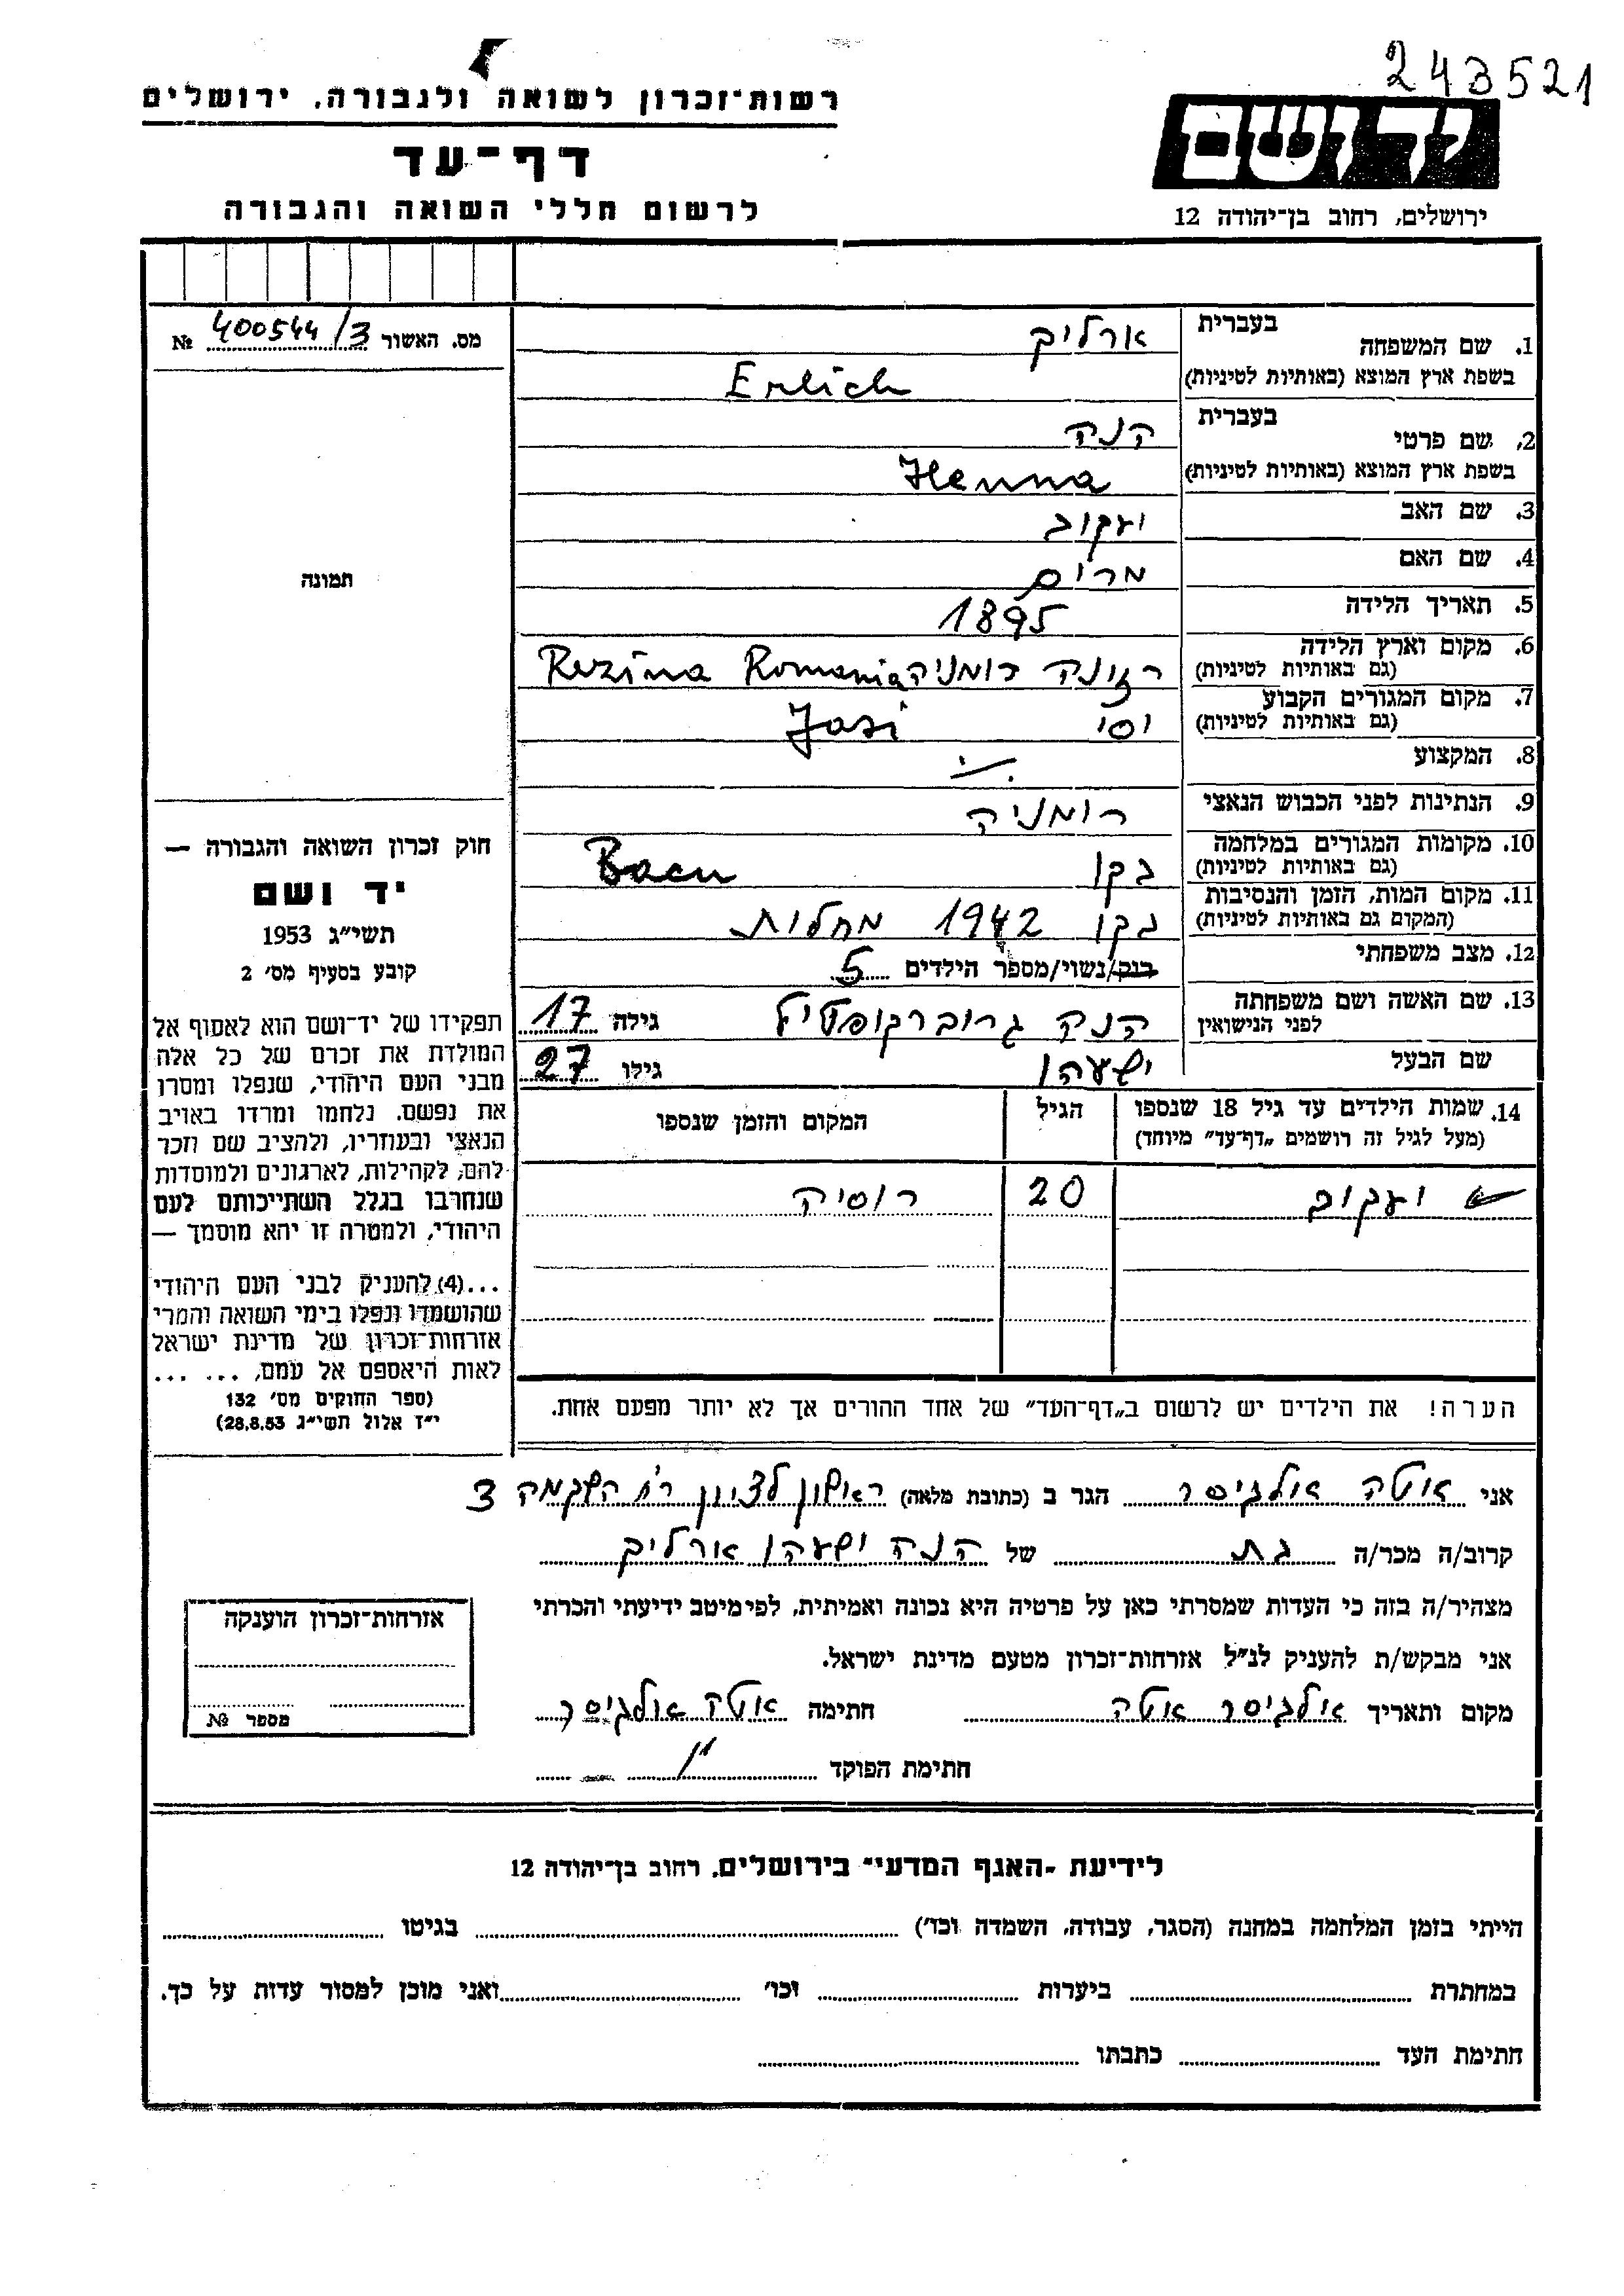 243521
רשות־זכרון לשואה ולגבורה, ירושלים
דף־עד
לרשום חללי השואה והגבורה
ידושם
ירושלים, רחוב בן־יהודה 12
מס. האשור 400544/3 №
תמונה
חוק זכרון השואה והגבורה —
יד ושם
תשי״ג 1953
קובע בסעיף מס׳ 2
תפקידו של יד־ושם הוא לאסוף אל
המולדת את זכרם של כל אלה
מבני העם היהודי, שנפלו ומסרו
את נפשם, נלחמו ומרדו באויב
הנאצי ובעוזריו, ולהציב שם וזכר
להם, לקהילות, לארגונים ולמוסדות
שנחרבו בגלל השתייכותם לעם
היהודי, ולמטרה זו יהא מוסמך —
...(4) להעניק לבני העם היהודי
שהושמדו ונפלו בימי השואה והמרי
אזרחות־זכרון של מדינת ישראל
לאות היאספם אל עמם, ... ...
(ספר החוקים מס׳ 132
י״ז אלול תשי״ג 28.8.53)
1. שם המשפחה בעברית ארליך
בשפת ארץ המוצא (באותיות לטיניות) Erlich
2. שם פרטי בעברית הנה
בשפת ארץ המוצא (באותיות לטיניות) Henna
3. שם האב יעקוב
4. שם האם מרים
5. תאריך הלידה 1895
6. מקום וארץ הלידה
(גם באותיות לטיניות) רזינה רומניה Rezina Romania
7. מקום המגורים הקבוע
(גם באותיות לטיניות) יסי Jasi
8. המקצוע ./.
9. הנתינות לפני הכבוש הנאצי רומניה
10. מקומות המגורים במלחמה
(גם באותיות לטיניות) בקו Bacu
11. מקום המות, הזמן והנסיבות
(המקום גם באותיות לטיניות) בקו 1942 מחלות
12. מצב משפחתי רווק/נשוי/מספר הילדים 5
13. שם האשה ושם משפחתה
לפני הנישואין הנה גילה 17
שם הבעל ישעהו גילו 27
14. שמות הילדים עד גיל 18 שנספו הגיל המקום והזמן שנספו
(מעל לגיל זה רושמים „דף־עד״ מיוחד)
יעקוב 20 רוסיה
הערה! את הילדים יש לרשום ב„דף־העד״ של אחד ההורים אך לא יותר מפעם אחת.
אני אטה אולגיסר הגר ב (כתובת מלאה) ראשון לציון רח השקמה 3
קרוב/ה מכר/ה בת של הנה ישעהו ארליך
מצהיר/ה בזה כי העדות שמסרתי כאן על פרטיה היא נכונה ואמיתית, לפי מיטב ידיעתי והכרתי
אני מבקש/ת להעניק לנ״ל אזרחות־זכרון מטעם מדינת ישראל.
מקום ותאריך אולגיסר אטה חתימה אטה אולגיסר
חתימת הפוקד
אזרחות־זכרון הוענקה
מספר №
לידיעת „האגף המדעי״ בירושלים, רחוב בן־יהודה 12
הייתי בזמן המלחמה במחנה (הסגר, עבודה, השמדה וכו׳) בגיטו
במחתרת ביערות וכו׳ ואני מוכן למסור עדות על כך.
חתימת העד כתבתו